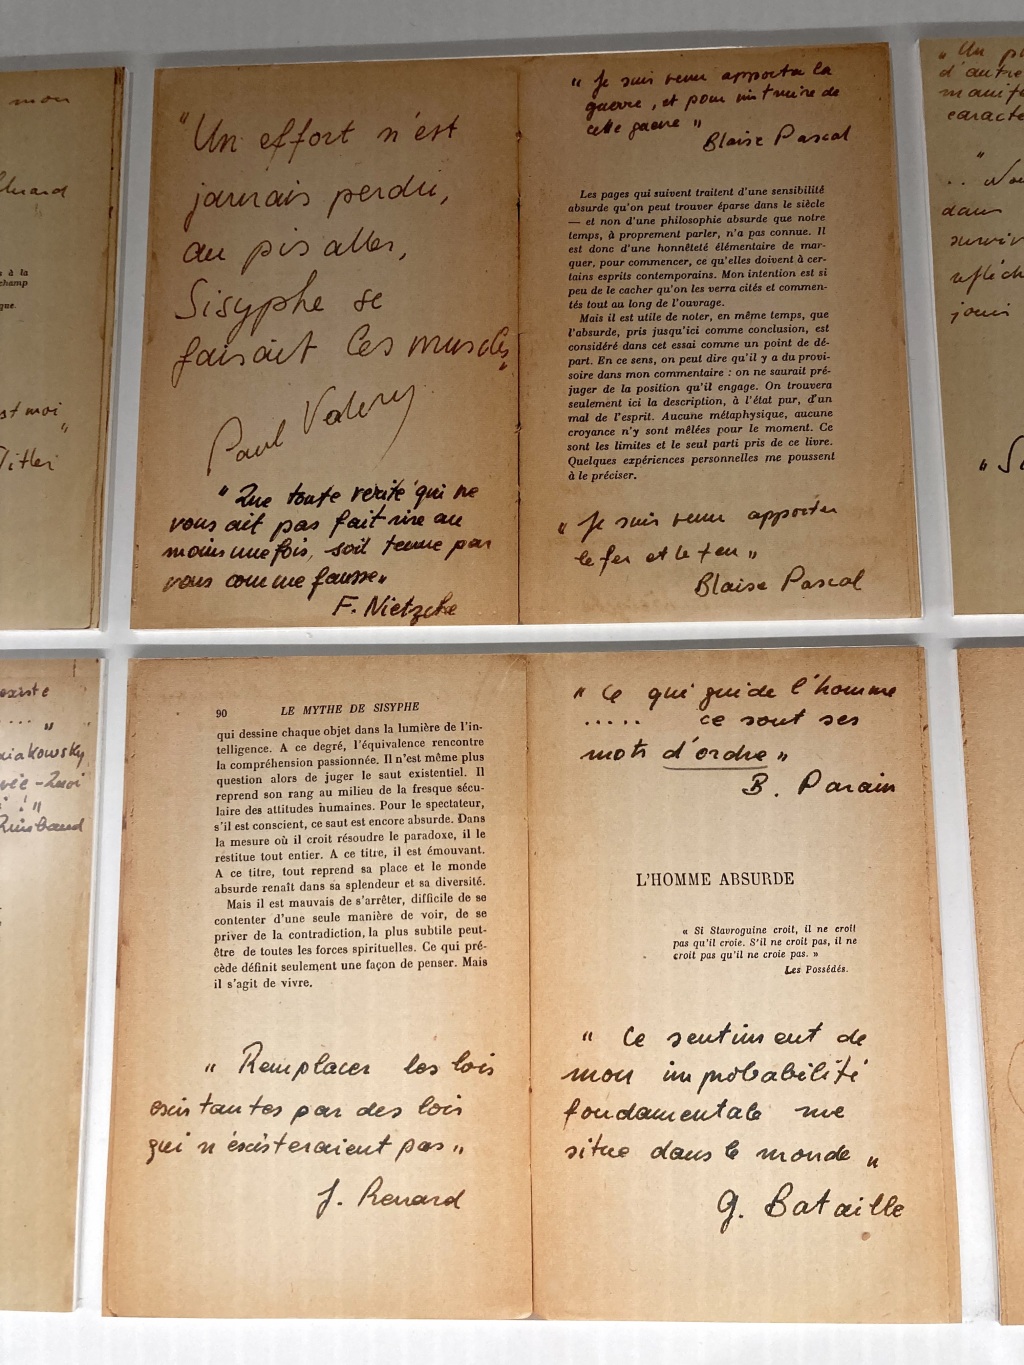 mon
à la
champ
que.
st moi
"
"Un effort n'est
jamais perdu,
au pis aller,
Sisyphe se
faisait les muscles"
Paul Valery
"Que toute verité qui ne
vous ait pas fait rire au
moins une fois, soit tenue par
vous comme fausse"
F. Nietzche
"Je suis venu apporter la
guerre, et pour
cette guerre"
Blaise Pascal
Les pages qui suivent traitent d'une sensibilité
absurde qu'on peut trouver éparse dans le siècle
— et non d'une philosophie absurde que notre
temps, à proprement parler, n'a pas connue. Il
est donc d'une honnêteté élémentaire de mar-
quer, pour commencer, ce qu'elles doivent à cer-
tains esprits contemporains. Mon intention est si
peu de le cacher qu'on les verra cités et commen-
tés tout au long de l'ouvrage.
Mais il est utile de noter, en même temps, que
l'absurde, pris jusqu'ici comme conclusion, est
considéré dans cet essai comme un point de dé-
part. En ce sens, on peut dire qu'il y a du provi-
soire dans mon commentaire : on ne saurait pré-
juger de la position qu'il engage. On trouvera
seulement ici la description, à l'état pur, d'un
mal de l'esprit. Aucune métaphysique, aucune
croyance n'y sont mêlées pour le moment. Ce
sont les limites et le seul parti pris de ce livre.
Quelques expériences personnelles me poussent
à le préciser.
"Je suis venu apporter
le fer et le feu"
Blaise Pascal
"Un
d'autre
manif
caract
dans
surviv
refléch
jouir
existe
.... "
iakowsky
Rimbaud
90 LE MYTHE DE SISYPHE
qui dessine chaque objet dans la lumière de l'in-
telligence. A ce degré, l'équivalence rencontre
la compréhension passionnée. Il n'est même plus
question alors de juger le saut existentiel. Il
reprend son rang au milieu de la fresque sécu-
laire des attitudes humaines. Pour le spectateur,
s'il est conscient, ce saut est encore absurde. Dans
la mesure où il croit résoudre le paradoxe, il le
restitue tout entier. A ce titre, il est émouvant.
A ce titre, tout reprend sa place et le monde
absurde renaît dans sa splendeur et sa diversité.
Mais il est mauvais de s'arrêter, difficile de se
contenter d'une seule manière de voir, de se
priver de la contradiction, la plus subtile peut-
être de toutes les forces spirituelles. Ce qui pré-
cède définit seulement une façon de penser. Mais
il s'agit de vivre.
"Remplacer les lois
existantes par des lois
qui n'existeraient pas"
J. Renard
"Ce qui guide l'homme
..... ce sont ses
mots d'ordre"
B. Parain
L'HOMME ABSURDE
« Si Stavroguine croit, il ne croit
pas qu'il croie. S'il ne croit pas, il ne
croit pas qu'il ne croie pas. »
Les Possédés.
"Ce sentiment de
mon improbabilité
fondamentale me
situe dans le monde"
G. Bataille